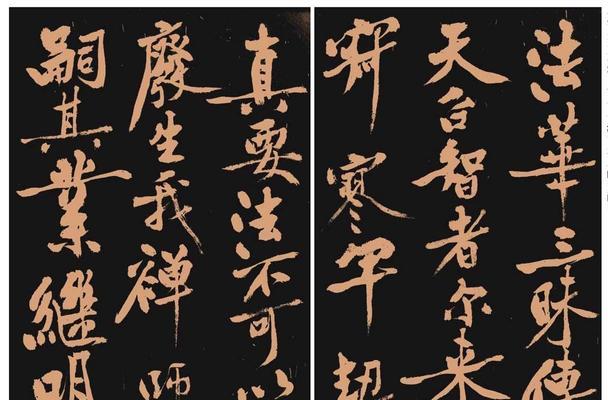 法華三昧傳
天台智者尔来
寂寥罕契
真要法不可以
廢生我禪師
嗣其業繼明